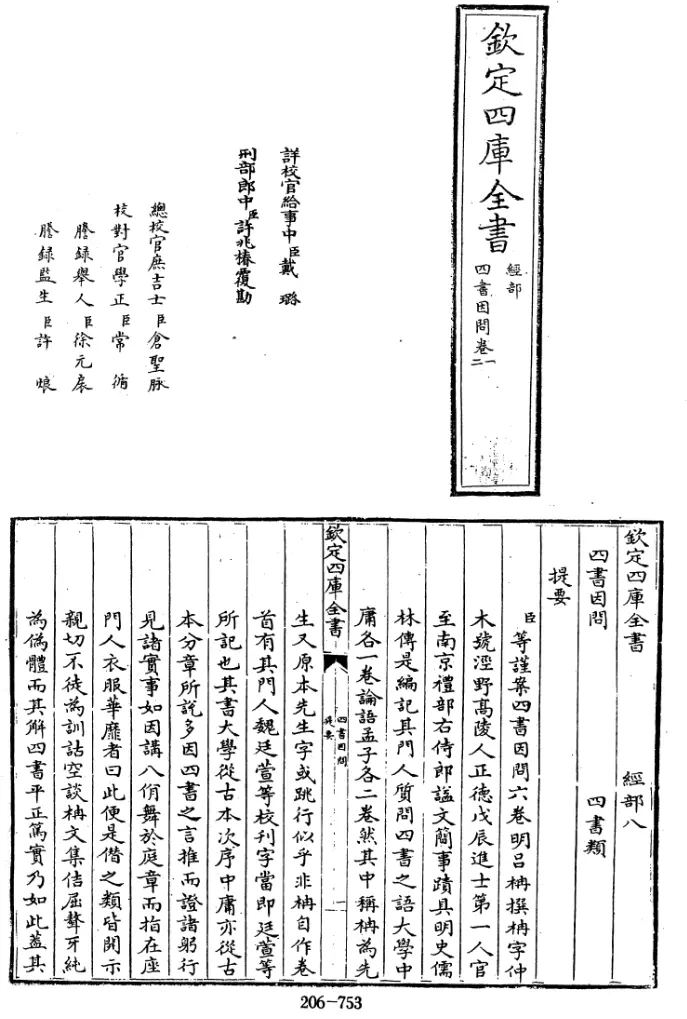 欽定四庫全書
經部
四書因問卷一二
詳校官給事中臣戴璐
刑部郎中臣許兆椿覆勘
總校官庶吉士臣倉聖脉
校對官學正臣常循
謄録舉人臣徐元
謄録監生臣許烺
欽定四庫全書 經部八
四書因問 四書類
提要
臣等謹案四書因問六卷明吕柟撰柟字仲
木號涇野髙陵人正德戊辰進士第一人官
至南京禮部右侍郎諡文簡事蹟具明史儒
林傳是編記其門人質問四書之語大學中
庸各一卷論語孟子各二卷然其中稱柟為先
欽定四庫全書
四書因問
提要
一
生又原本先生字或跳行似乎非柟自作卷
首有其門人魏廷萱等校刊字當即廷萱等
所記也其書大學從古本次序中庸亦從古
本分章所說多因四書之言推而證諸躬行
見諸實事如因講八佾舞於庭章而指在座
門人衣服華靡者曰此便是僭之類皆開示
親切不徒為訓詁空談柟文集佶屈聱牙純
為偽體而其解四書平正篤實乃如此蓋其
206-753